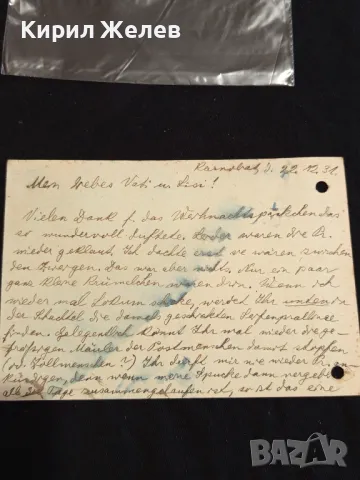 Кирил Желев
Karnobat, d. 22.12.31.
Mein liebes Vati u. Lisi!
Vielen Dank f. das Weihnachtspäckchen das
so wundervoll duftete. Leider waren die
wieder geklaut. Ich dachte erst sie wären zwischen
den Zwergen. Das war aber nichts. Nur ein paar
ganz kleine Krümelchen waren drin. Wenn ich
wieder mal Lokum schicke, werdet Ihr unten in
der Schachtel die damals geschenkten
finden. Gelegentlich könnt Ihr mal wieder die ge-
frässigen Mäuler der Postmenschen damit stopfen
(od. Zollmenschen?) Ihr dürft mir nie wieder
kündigen, denn wenn meine Spucke dann vergebl.
alle Tage zusammengelaufen ist, so ist das eine
BAZAR